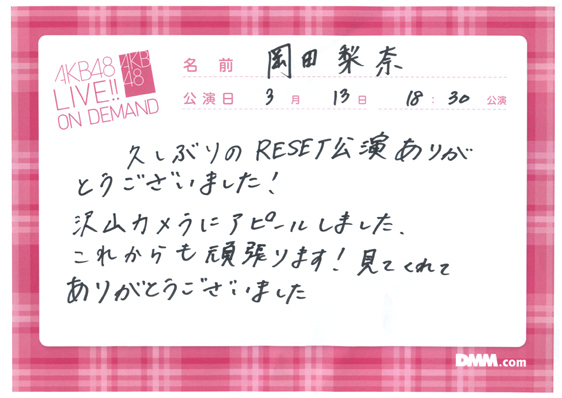 AKB48
LIVE!!
ON DEMAND
AKB
48
名前 岡田梨奈
公演日 3月 13日 18:30 公演
久しぶりのRESET公演ありが
とうございました!
沢山カメラにアピールしました、
これからも頑張ります!見てくれて
ありがとうございました
DMM.com